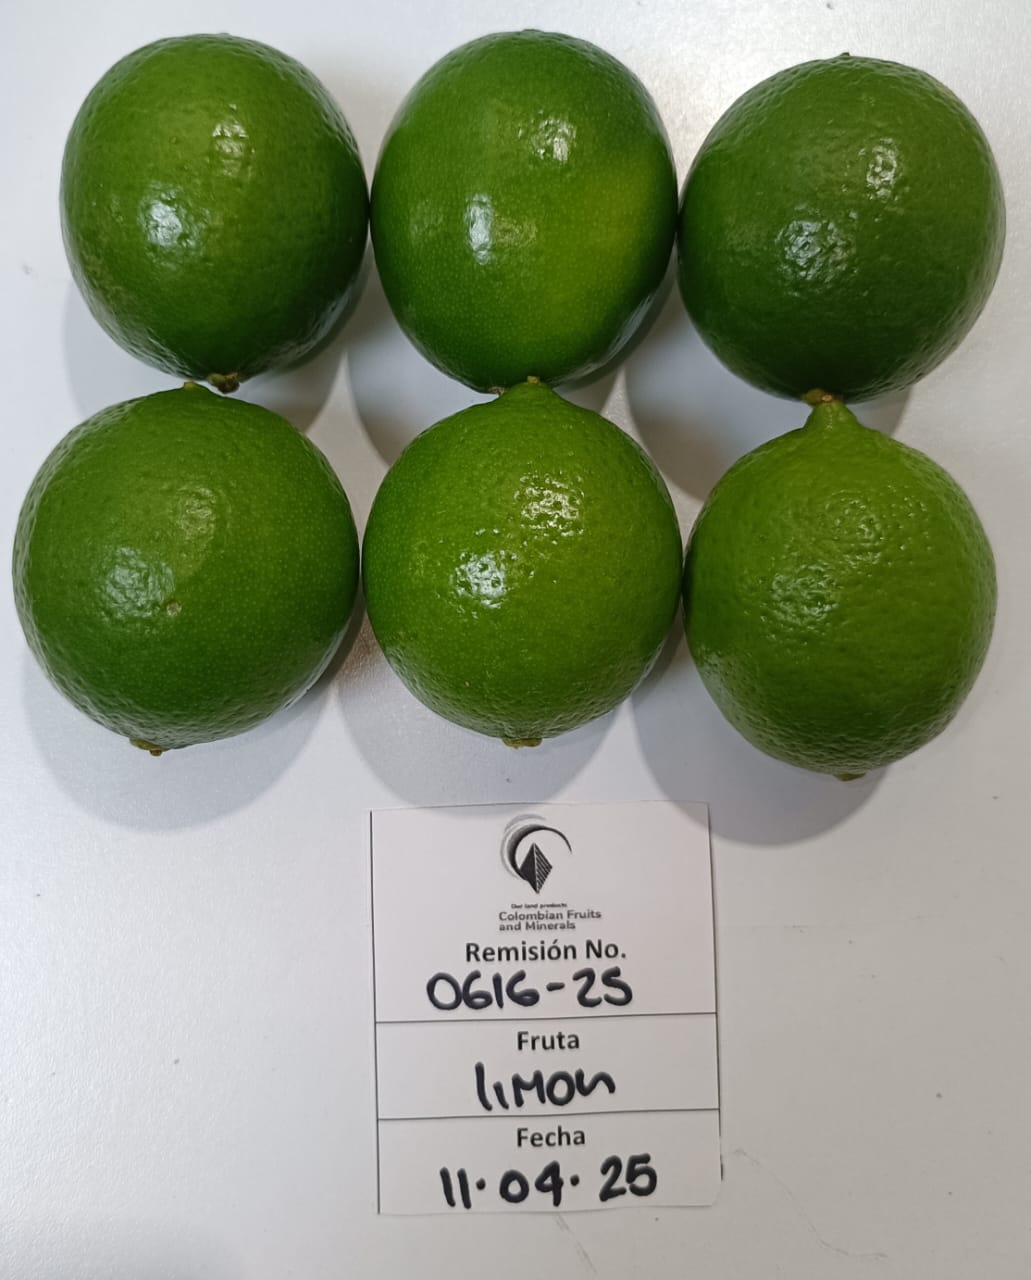 Our land products
Colombian Fruits
and Minerals
Remisión No.
0616-25
Fruta
limon
Fecha
11.04.25